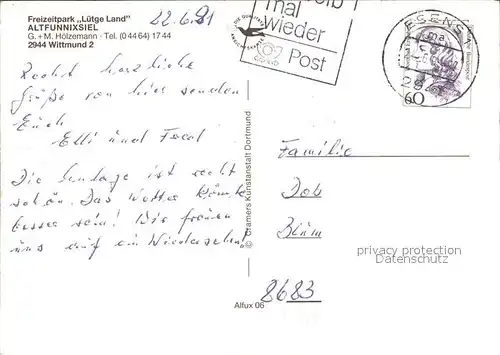 Freizeitpark „Lütge Land"
ALTFUNNIXSIEL
G. + M. Hölzemann · Tel. (0 44 64) 17 44
2944 Wittmund 2
22.6.91
mal
wieder
Post
ESENS
60
Recht herzliche
Grüße von hier senden
Euch
Elli und
Die Anlage ist recht
schön. Das Wetter könnte
besser sein! Wir freuen
uns auf ein Wiedersehen!
© Cramers Kunstanstalt Dortmund
Familie
Blüm
8683
privacy protection
Datenschutz
Alfux 06